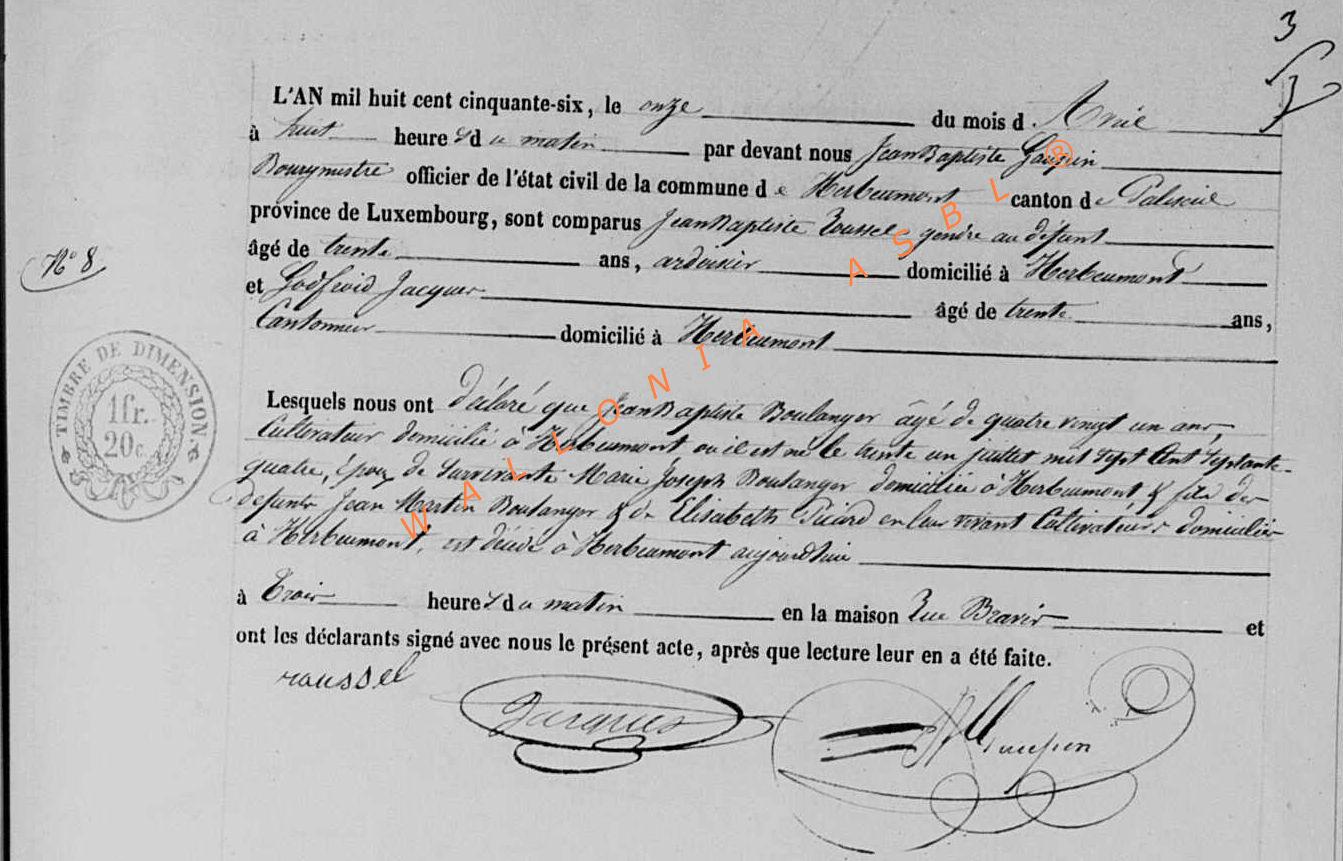 3
3
L'AN mil huit cent cinquante-six, le onze du mois d Avril
à huit heures du matin par devant nous Jean Baptiste
Bourgmestre officier de l'état civil de la commune de Herbeumont canton de Paliseul
province de Luxembourg, sont comparus Jean Baptiste Roussel gendre au défunt
N° 8
âgé de trente ans, ardoisier domicilié à Herbeumont
et Godfroid Jacques âgé de trente ans,
Cantonnier domicilié à Herbeumont
TIMBRE DE DIMENSION.
1fr.
20c.
Lesquels nous ont déclaré que Jean Baptiste Boulanger âgé de quatre vingt un ans,
Cultivateur domicilié à Herbeumont où il est né le trente un juillet mil sept Cent septante-
quatre, époux de survivante Marie Joseph Boulanger domiciliée à Herbeumont & fils des
defunts Jean Martin Boulanger & de Elisabeth Picard en leur vivant Cultivateurs domiciliés
à Herbeumont, est décédé à Herbeumont aujourd'hui
à trois heures du matin en la maison Rue Bravir et
ont les déclarants signé avec nous le présent acte, après que lecture leur en a été faite.
roussel
Jacques
WALLONIA ASBL ®